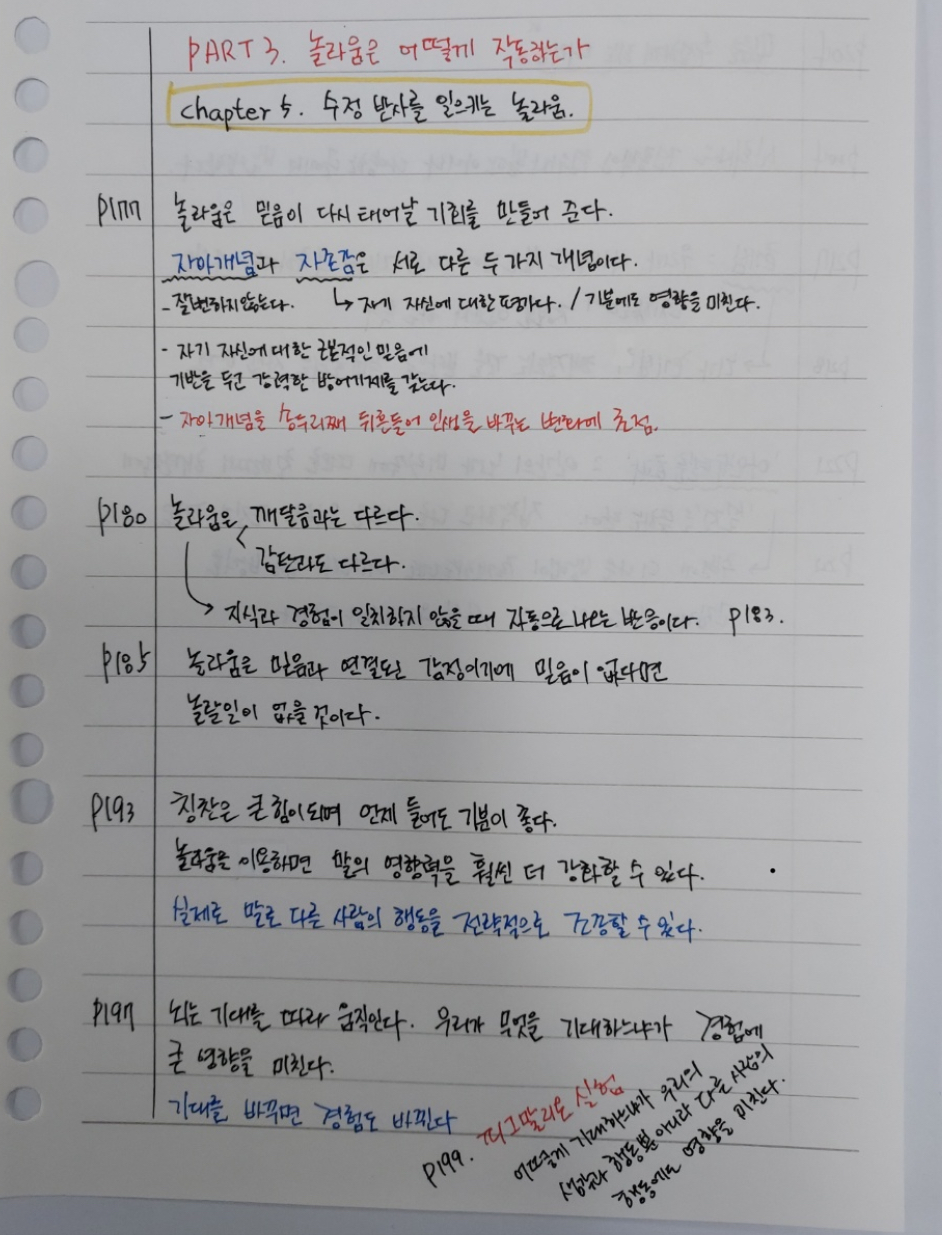 PART 3. 놀라움은 어떻게 작동하는가
chapter 5. 수정 반사를 일으키는 놀라움.
p177 놀라움은 믿음이 다시 태어날 기회를 만들어 준다.
자아개념과 자존감은 서로 다른 두가지 개념이다.
- 잘변하지않는다. ↳ 자기 자신에 대한 평가다. / 기분에도 영향을 미친다.
- 자기 자신에 대한 근본적인 믿음에
기반을 두고 강력한 방어기제를 갖는다.
- 자아개념을 송두리째 뒤흔들어 인생을 바꾸는 변화에 초점.
p180 놀라움은 깨달음과는 다르다.
감탄과도 다르다.
→ 지식과 경험이 일치하지 않을 때 자동으로 나오는 반응이다. p183.
p185 놀라움은 믿음과 연결된 감정이기에 믿음이 없다면
놀랄일이 없을 것이다.
p193 칭찬은 큰 힘이되며 언제 들어도 기분이 좋다.
놀라움을 이용하면 말의 영향력을 훨씬 더 강화할 수 있다.
실제로 말로 다른 사람의 행동을 전략적으로 조종할 수 있다.
p197 뇌는 기대를 따라 움직인다. 우리가 무엇을 기대하느냐가 경험에
큰 영향을 미친다.
기대를 바꾸면 경험도 바뀐다
p199. 피그말리온 실험
어떻게 기대하느냐가 우리의
생각과 행동뿐 아니라 다른 사람의
행동에도 영향을 미친다.